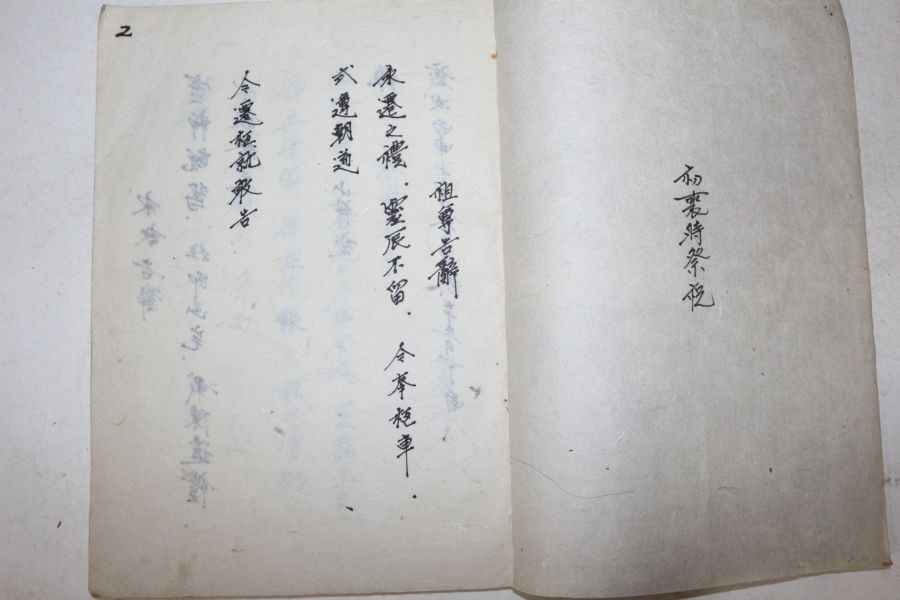 初喪時祭祝
2
祖奠告辭
永遷之禮. 靈辰不留. 今奉柩車.
式遵朝道
今遷柩就敢告